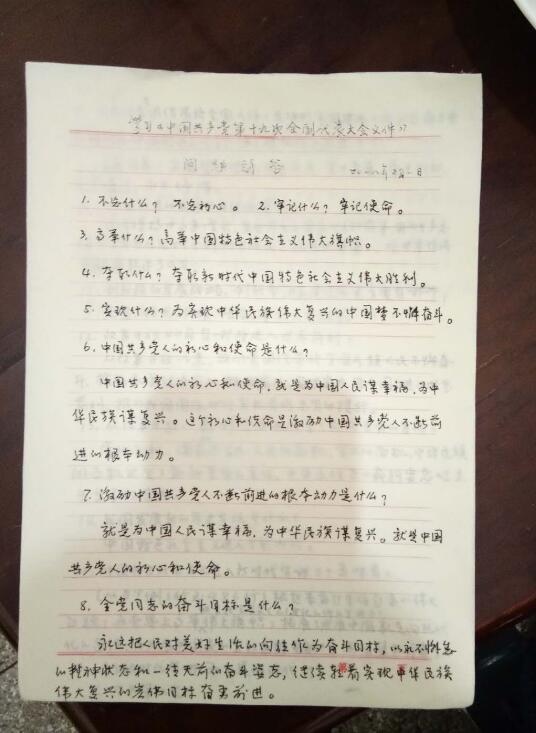 学习《中国共产党第十九次全国代表大会文件》
问和新答
1. 不忘什么？不忘初心。 2. 牢记什么？牢记使命。
3. 高举什么？高举中国特色社会主义伟大旗帜。
4. 夺取什么？夺取新时代中国特色社会主义伟大胜利。
5. 实现什么？为实现中华民族伟大复兴的中国梦不懈奋斗。
6. 中国共产党人的初心和使命是什么？
中国共产党人的初心和使命，就是为中国人民谋幸福，为中
华民族谋复兴。这个初心和使命是激励中国共产党人不断前
进的根本动力。
7. 激励中国共产党人不断前进的根本动力是什么？
就是为中国人民谋幸福，为中华民族谋复兴。就是中国
共产党人的初心和使命。
8. 全党同志的奋斗目标是什么？
永远把人民对美好生活的向往作为奋斗目标，以永不懈怠
的精神状态和一往无前的奋斗姿态，继续朝着实现中华民族
伟大复兴的宏伟目标奋勇前进。